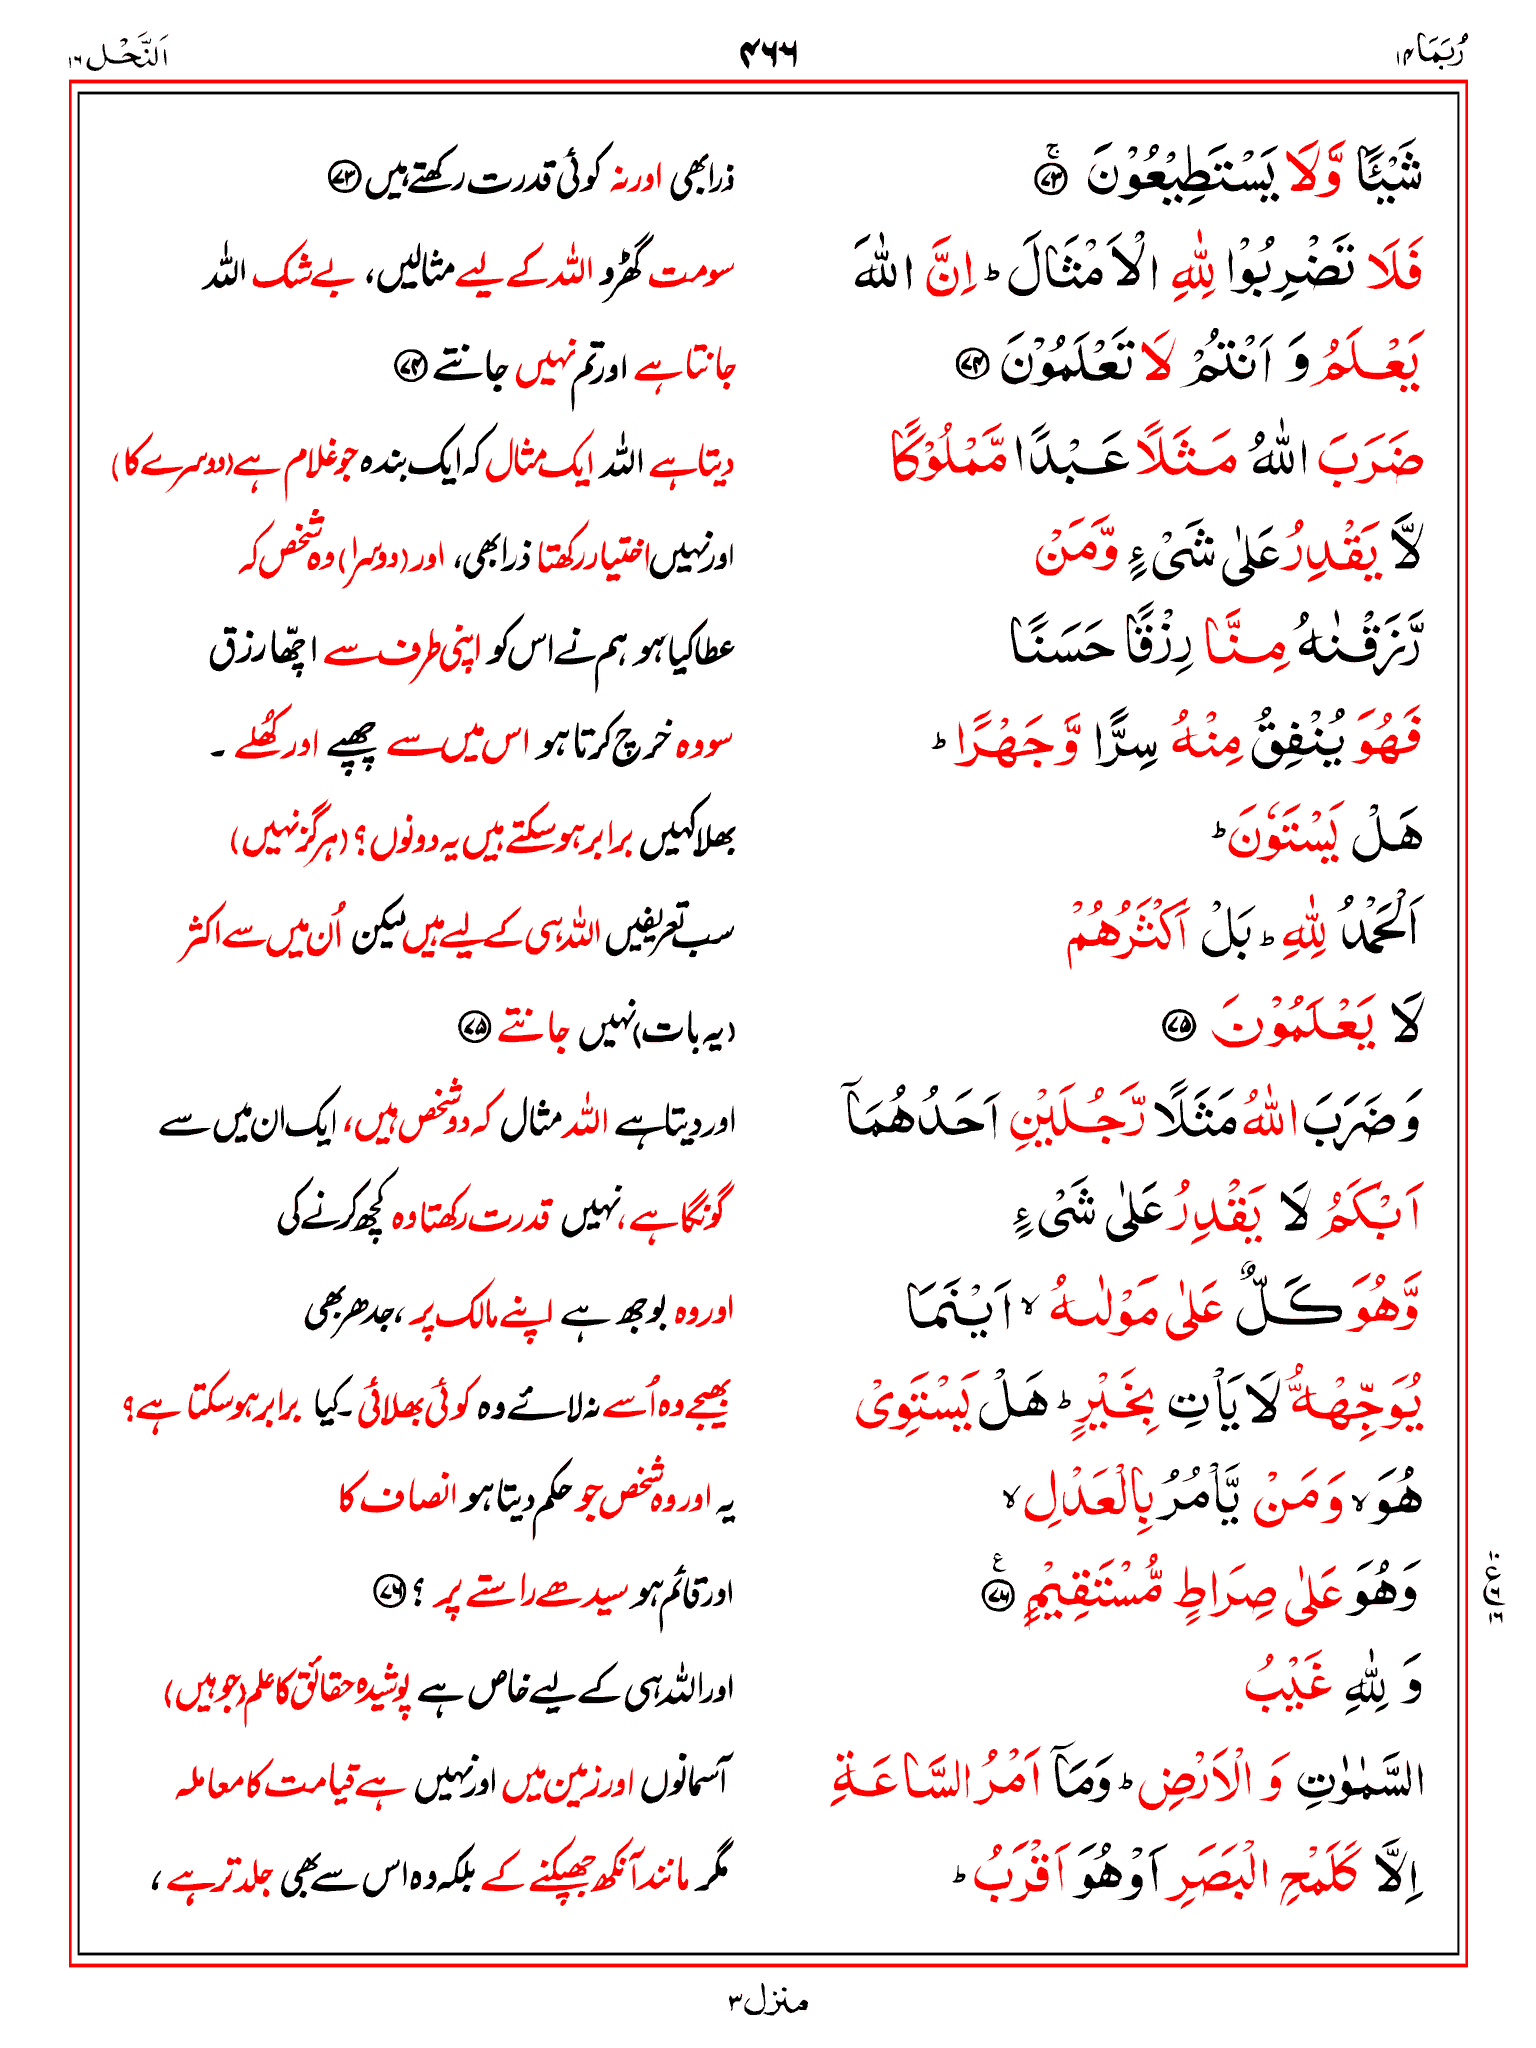 رُبَمَا ۱۴
۴۶۶
اَلنَّحْل ۱۶
شَيْـًٔا وَّلَا يَسْتَطِيْعُوْنَ ۚ ﴿۷۳﴾
ذرا بھی اور نہ کوئی قدرت رکھتے ہیں ﴿۷۳﴾
فَلَا تَضْرِبُوْا لِلّٰهِ الْاَمْثَالَ ؕ اِنَّ اللّٰهَ
سو مت گھڑو اللہ کے لیے مثالیں، بے شک اللہ
يَعْلَمُ وَ اَنْتُمْ لَا تَعْلَمُوْنَ ﴿۷۴﴾
جانتا ہے اور تم نہیں جانتے ﴿۷۴﴾
ضَرَبَ اللّٰهُ مَثَلًا عَبْدًا مَّمْلُوْكًا
دیتا ہے اللہ ایک مثال کہ ایک بندہ جو غلام ہے (دوسرے کا)
لَّا يَقْدِرُ عَلٰى شَىْءٍ وَّمَنْ
اور نہیں اختیار رکھتا ذرا بھی، اور (دوسرا) وہ شخص کہ
رَّزَقْنٰهُ مِنَّا رِزْقًا حَسَنًا
عطا کیا ہو ہم نے اس کو اپنی طرف سے اچّھا رزق
فَهُوَ يُنْفِقُ مِنْهُ سِرًّا وَّ جَهْرًا ؕ
سو وہ خرچ کرتا ہو اس میں سے چھپے اور کُھلے ۔
هَلْ يَسْتَوٗنَ ؕ
بھلا کہیں برابر ہو سکتے ہیں یہ دونوں؟ (ہرگز نہیں)
اَلْحَمْدُ لِلّٰهِ ؕ بَلْ اَكْثَرُهُمْ
سب تعریفیں اللہ ہی کے لیے ہیں لیکن اُن میں سے اکثر
لَا يَعْلَمُوْنَ ﴿۷۵﴾
(یہ بات) نہیں جانتے ﴿۷۵﴾
وَ ضَرَبَ اللّٰهُ مَثَلًا رَّجُلَيْنِ اَحَدُهُمَآ
اور دیتا ہے اللہ مثال کہ دو شخص ہیں، ایک ان میں سے
اَبْكَمُ لَا يَقْدِرُ عَلٰى شَىْءٍ
گونگا ہے، نہیں قدرت رکھتا وہ کچھ کرنے کی
وَّهُوَ كَلٌّ عَلٰى مَوْلٰىهُ ۙ اَيْنَمَا
اور وہ بوجھ ہے اپنے مالک پر، جدھر بھی
يُوَجِّهْهُّ لَا يَاْتِ بِخَيْرٍ ؕ هَلْ يَسْتَوِىْ
بھیجے وہ اُسے نہ لائے وہ کوئی بھلائی۔ کیا برابر ہو سکتا ہے؟
هُوَ ۙ وَ مَنْ يَّاْمُرُ بِالْعَدْلِ ۙ
یہ اور وہ شخص جو حکم دیتا ہو انصاف کا
وَهُوَ عَلٰى صِرَاطٍ مُّسْتَقِيْمٍ ﴿۷۶﴾ ع
اور قائم ہو سیدھے راستے پر ؟ ﴿۷۶﴾
وَ لِلّٰهِ غَيْبُ
اور اللہ ہی کے لیے خاص ہے پوشیدہ حقائق کا علم (جو ہیں)
السَّمٰوٰتِ وَ الْاَرْضِ ؕ وَمَآ اَمْرُ السَّاعَةِ
آسمانوں اور زمین میں اور نہیں ہے قیامت کا معاملہ
اِلَّا كَلَمْحِ الْبَصَرِ اَوْ هُوَ اَقْرَبُ ؕ
مگر مانند آنکھ جھپکنے کے بلکہ وہ اس سے بھی جلد تر ہے،
منزل ۳